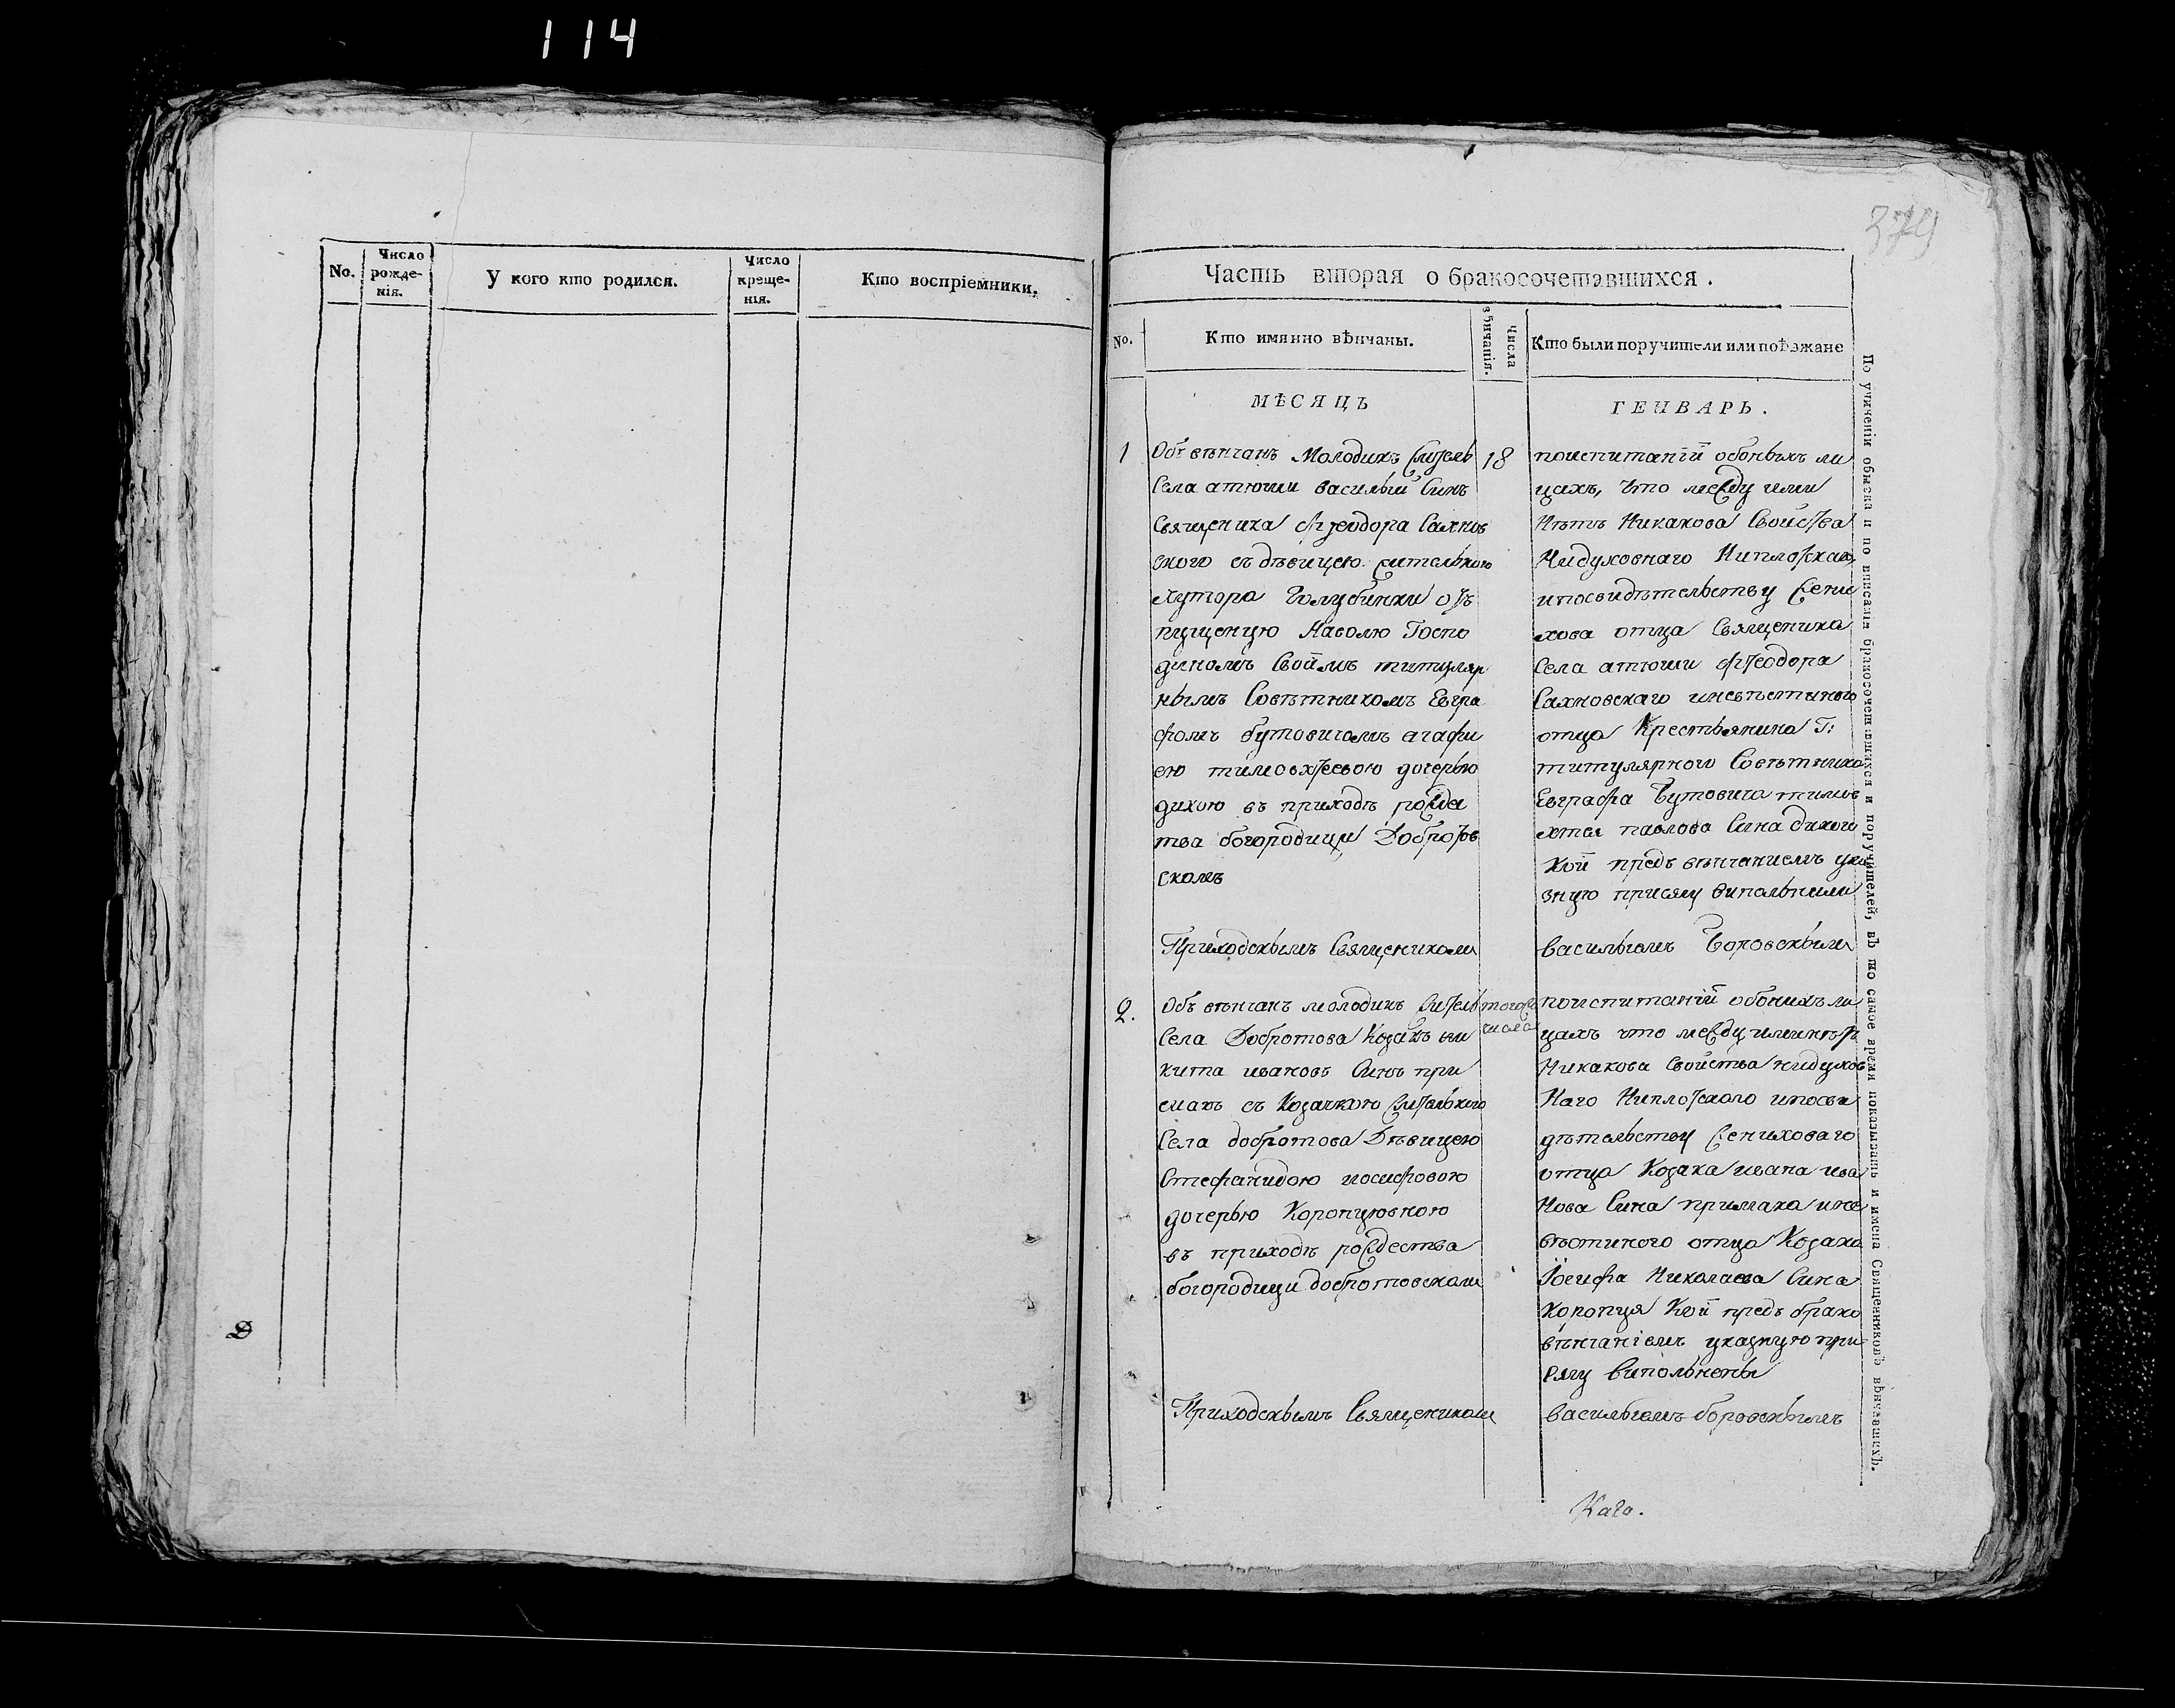 114
No.
Число рожде-нія.
У кого кто родился.
Число креще-нія.
Кто воспріемники.
379
Часть вторая о бракосочетавшихся.
No.
Кто имянно вѣнчаны.
Числа вѣнчанія.
Кто были поручители или поѣзжане
МѢСЯЦЪ
ГЕНВАРЬ.
1
Объ вѣнчанъ Молодикъ Жытель
Села атюши василый Синъ
Священика Фтеодора Сахнов
ского съ дѣвицею жительного
хутора Голубинки отъ
пущеную Наволю Госпо
диномъ Своимъ титуляр
нымъ Совѣтникомъ Евгра
фомъ бутовичомъ агафи
ею тимофтеевою дочерью
дикою въ приходѣ рожде
тва богородици Добротов
скомъ
18
поиспитаніи обоныхъ ли
цахъ, что между ими
Нѣтъ Никакова Свойства
Нидуховнаго Ниплотскаго
ипосвидѣтельству Жени
хова отца Священика
Села атюши Фтеодора
Сахновскаго иневѣстиного
отца Крестьянина Г:
титулярного Совѣтника
Евграфа Бутовича тимоф
ѣя павлова Сина дикого
Кой предъ вѣнчаниемъ ука
зную присягу виполънили
Приходскымъ Священиком
василыемъ Боровскым
2.
Объ вѣнчанъ молодикъ Жытель
Села Добротова Козакъ ни
кита ивановъ Синъ при
макъ съ Козачкою Жытельного
Села добротова Дѣвицею
Стефанидою иосифовою
дочерью Коропцювною
въ приходѣ рождества
богородици добротовском
того ж
числа
поиспитаніи обоныхъ ли
цахъ что между ими нѣт
Никакова Свойства нидухов
Наго Ниплотского ипосви
дѣтельству Жениховаго
отца Козака ивана ива
Нова Сина примака ине
вѣстиного отца Козака
Іосифа Николаева Сина
Коропця Кой предъ брако
вѣнчаніемъ указную при
сягу виполънены
Приходскымъ Священиком
василыемъ боровскымъ
По учиненіи обыска и по вписаніи бракосочетавшихся и поручителей, въ то самое время показывать и имена Священниковъ вѣнчавшихъ.